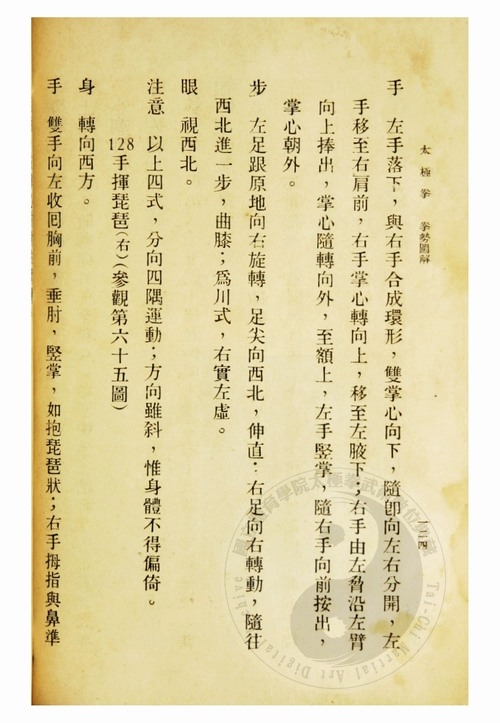 太極拳　拳勢圖解
一二四
手　左手落下，與右手合成環形，雙掌心向下，隨卽向左右分開，左
手移至右肩前，右手掌心轉向上，移至左腋下；右手由左脅沿左臂
向上捧出，掌心隨轉向外，至額上，左手竪掌，隨右手向前按出，
掌心朝外。
步　左足跟原地向右旋轉，足尖向西北，伸直；右足向右轉動，隨往
西北進一步，曲膝；爲川式，右實左虛。
眼　視西北。
注意　以上四式，分向四隅運動；方向雖斜，惟身體不得偏倚。
128手揮琵琶(右)(參觀第六十五圖)
身　轉向西方。
手　雙手向左收囘胸前，垂肘，竪掌，如抱琵琶狀；右手拇指與鼻準
Tai-Chi Martial Art Digital Archive